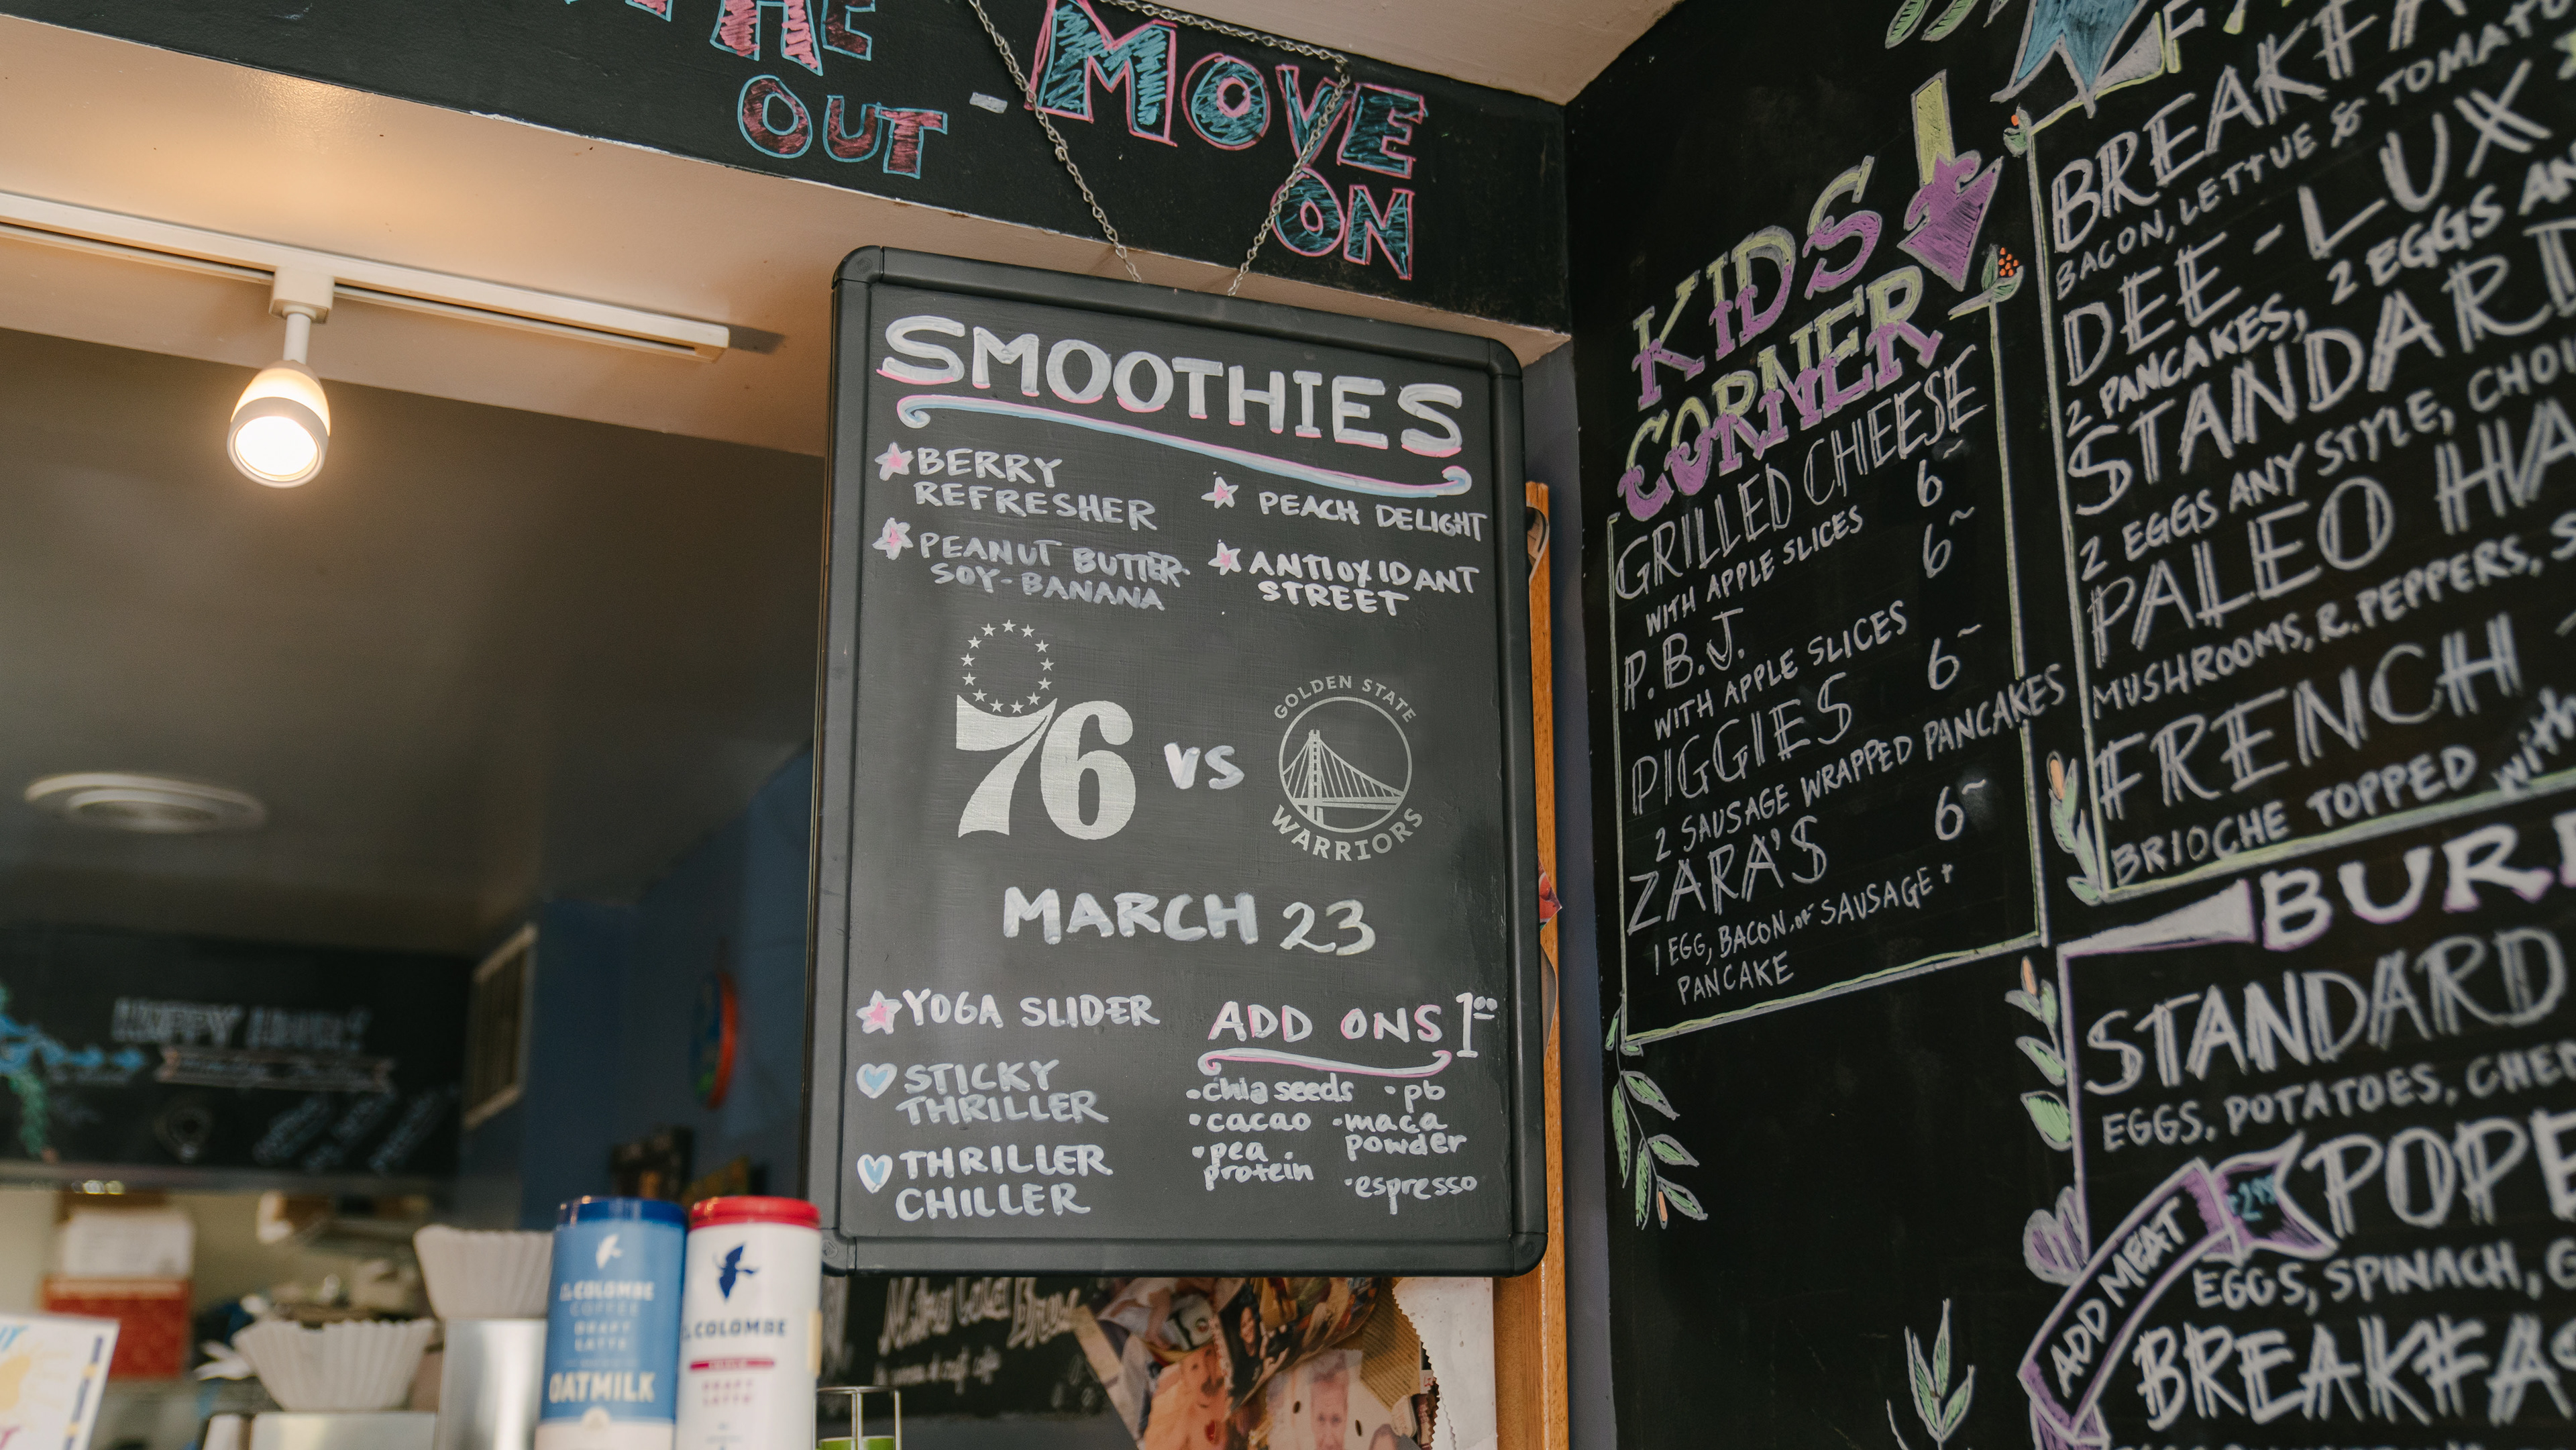 THE
OUT - MOVE
ON
SMOOTHIES
BERRY
REFRESHER
PEANUT BUTTER-
SOY-BANANA
PEACH DELIGHT
ANTIOXIDANT
STREET
76 VS GOLDEN STATE
WARRIORS
MARCH 23
YOGA SLIDER
STICKY
THRILLER
THRILLER
CHILLER
ADD ONS 1.00
•chia seeds
•cacao
•pea
protein
•pb
•maca
powder
•espresso
KIDS
CORNER
GRILLED CHEESE 6~
WITH APPLE SLICES
P.B.J. 6~
WITH APPLE SLICES
PIGGIES 6~
2 SAUSAGE WRAPPED PANCAKES
ZARA'S 6~
1 EGG, BACON, or SAUSAGE +
PANCAKE
BACON, LETTUE & TOMATO
DEE-LUX
2 PANCAKES, 2 EGGS
STANDARD
2 EGGS ANY STYLE,
PALEO
MUSHROOMS, R.PEPPERS,
FRENCH
BRIOCHE TOPPED with
STANDARD
EGGS, POTATOES,
ADD MEAT
EGGS, SPINACH,
LA COLOMBE
COFFEE
DRAFT
LATTE
OATMILK
LA COLOMBE
DRAFT
LATTE
HAPPY